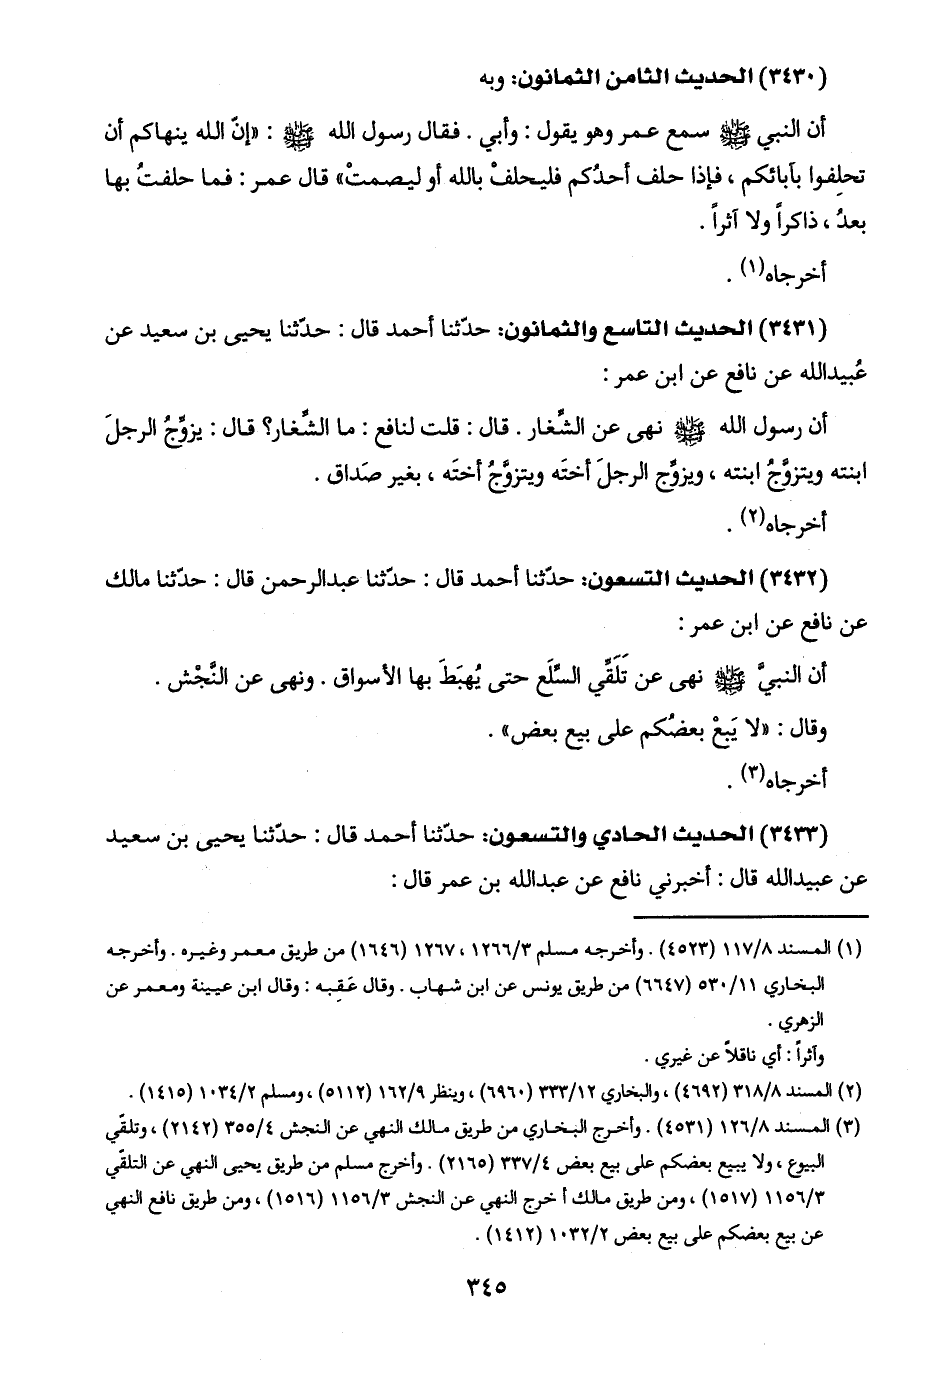 (٣٤٣٠) الحديث الثامن الثمانون: وبه
أن النبي ﷺ سمع عمر وهو يقول : وأبي . فقال رسول الله ﷺ : «إنّ الله ينهاكم أن
تحلِفوا بآبائكم ، فإذا حلف أحدُكم فليحلفْ بالله أو ليصمتْ» قال عمر : فما حلفتُ بها
بعدُ ، ذاكراً ولا آثراً .
أخرجاه(١) .
(٣٤٣١) الحديث التاسع والثمانون: حدّثنا أحمد قال : حدّثنا يحيى بن سعيد عن
عُبيدالله عن نافع عن ابن عمر :
أن رسول الله ﷺ نهى عن الشِّغار . قال : قلت لنافع : ما الشِّغار؟ قال : يزوِّجُ الرجلَ
ابنته ويتزوَّجُ ابنته ، ويزوِّج الرجلَ أختَه ويتزوَّجُ أختَه ، بغير صَداق .
أخرجاه(٢) .
(٣٤٣٢) الحديث التسعون: حدّثنا أحمد قال : حدّثنا عبدالرحمن قال : حدّثنا مالك
عن نافع عن ابن عمر :
أن النبيَّ ﷺ نهى عن تَلَقِّي السِّلَع حتى يُهبَطَ بها الأسواق . ونهى عن النَّجْش .
وقال : «لا يَبِعْ بعضُكم على بيع بعض» .
أخرجاه(٣) .
(٣٤٣٣) الحديث الحادي والتسعون: حدّثنا أحمد قال : حدّثنا يحيى بن سعيد
عن عبيدالله قال : أخبرني نافع عن عبدالله بن عمر قال :
(١) المسند ١١٧/٨ (٤٥٢٣) . وأخرجه مسلم ١٢٦٦/٣ ، ١٢٦٧ (١٦٤٦) من طريق معمر وغيره . وأخرجه
البخاري ٥٣٠/١١ (٦٦٤٧) من طريق يونس عن ابن شهاب . وقال عَقِبه : وقال ابن عيينة ومعمر عن
الزهري .
وآثراً : أي ناقلاً عن غيري .
(٢) المسند ٣١٨/٨ (٤٦٩٢) ، والبخاري ٣٣٣/١٢ (٦٩٦٠) ، وينظر ١٦٢/٩ (٥١١٢) ، ومسلم ١٠٣٤/٢ (١٤١٥) .
(٣) المسند ١٢٦/٨ (٤٥٣١) . وأخرج البخاري من طريق مالك النهي عن النجش ٣٥٥/٤ (٢١٤٢) ، وتلقّي
البيوع ، ولا يبيع بعضكم على بيع بعض ٣٣٧/٤ (٢١٦٥) . وأخرج مسلم من طريق يحيى النهي عن التلقّي
١١٥٦/٣ (١٥١٧) ، ومن طريق مالك أ خرج النهي عن النجش ١١٥٦/٣ (١٥١٦) ، ومن طريق نافع النهي
عن بيع بعضكم على بيع بعض ١٠٣٢/٢ (١٤١٢) .
٣٤٥